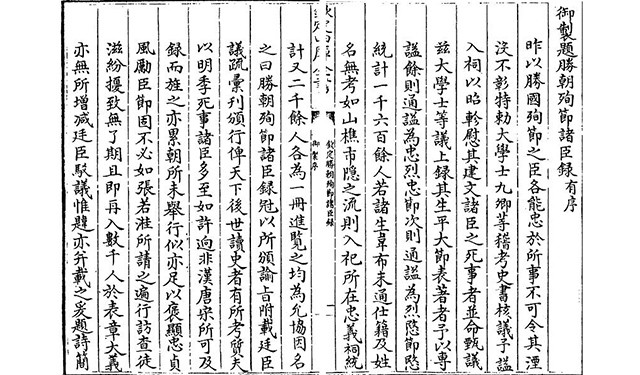 御製題勝朝殉節諸臣録有序
昨以勝國殉節之臣各能忠於所事不可令其湮
沒不彰特勅大學士九卿等稽考史書核議予諡
入祠以昭軫慰其建文諸臣之死事者並命甄議
兹大學士等議上録其生平大節表著者予以專
諡餘則通諡為忠烈忠節次則通諡為烈愍節愍
統計一千六百餘人若諸生韋布未通仕籍及姓
名無考如山樵市隐之流則入祀所在忠義祠統
欽定勝朝殉節諸臣録
御製序
計又二千餘人各為一冊進覽之均為允協因名
之曰勝朝殉節諸臣録冠以所頒諭㫖附載廷臣
議疏彙刋頒行俾天下後世讀史者有所考質夫
以明季死事諸臣多至如許迥非漢唐宋所可及
録而旌之亦累朝所未舉行似亦足以褒顯忠貞
風勵臣節固不必如張若溎所請之遍行訪查徒
滋紛擾致無了期且即再入數千人於表章大義
亦無所增減廷臣駁議惟韙亦并載之爰題詩簡